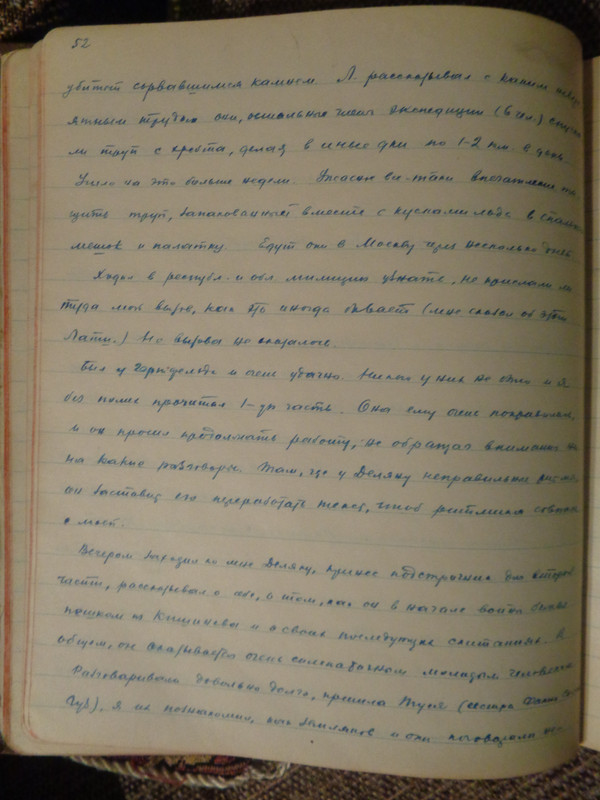 52
убитого сорвавшимся камнем. Л. рассказывал с каким
трудом они, остальные члены экспедиции (6 чел.)
ли труп с хребта, делая в иные дни по 1-2 км. в день.
Ушло на это больше недели. Ужасное все-таки впечатление
щить труп, запакованный вместе с кусками льда в
мешок и палатку. Едут они в Москву через несколько дней.
Ходил в республ. и обл. милицию узнать, не прислали ли
туда мой вызов, как это иногда бывает (мне сказал об этом
Но вызова не оказалось.
Был у и очень удачно. Никого у них не было и я
без помех прочитал 1-ую часть. Она ему очень понравилась,
и он просил продолжать работу, не обращая внимания ни
на какие разговоры. Там, где у Деляну неправильный ритм,
он заставит его переработать текст, чтоб ритмика совпала
с моей.
Вечером заходил ко мне Деляну, принес подстрочник для второй
части, рассказывал о себе, о том, как он в начале войны бежал
пешком из Кишинева и о своих последующих скитаниях. В
общем, он оказывается очень симпатичным молодым человеком.
Разговаривали довольно долго, пришла Туся (сестра
я их познакомил, как земляков и они поговорили